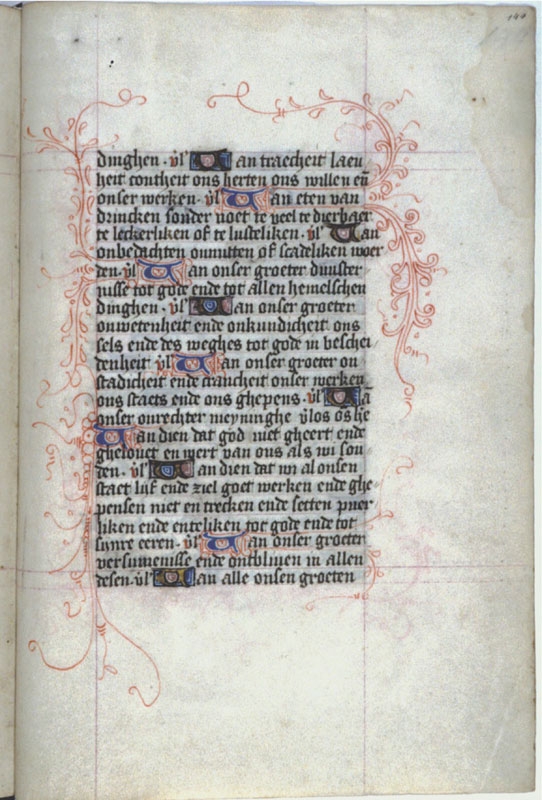 144
dinghen . v̄l' Van traecheit laeu
heit coutheit ons herten ons willen eñ
onser werken . v̄l' Van eten van
drincken sonder noet te veel te dierbaer
te leckerliken of te lusteliken . v̄l' Van
onbedachten onnutten of scadeliken woer
den . v̄l' Van onser groeter duuster
nisse tot gode ende tot allen hemelschen
dinghen . v̄l' Van onser groeter
onwetenheit ende onkundicheit ons
sels ende des weghes tot gode in beschei
denheit v̄l' Van onser groeter on
stadicheit ende crancheit onser werken
ons staets ende ons ghepens . v̄l' Vā
onser onrechter meyninghe v̄los os he
Van dien dat god niet gheert ende
ghelouet en wert van ons als wi sou
den . v̄l' Van dien dat wi al onsen
staet lijf ende ziel goet werken ende ghe
pensen niet en trecken ende setten puer
liken ende enteliken tot gode ende tot
synre eeren . v̄l' Van onser groeter
versumenisse ende ontbliuen in allen
desen . v̄l' Van alle onsen groeten